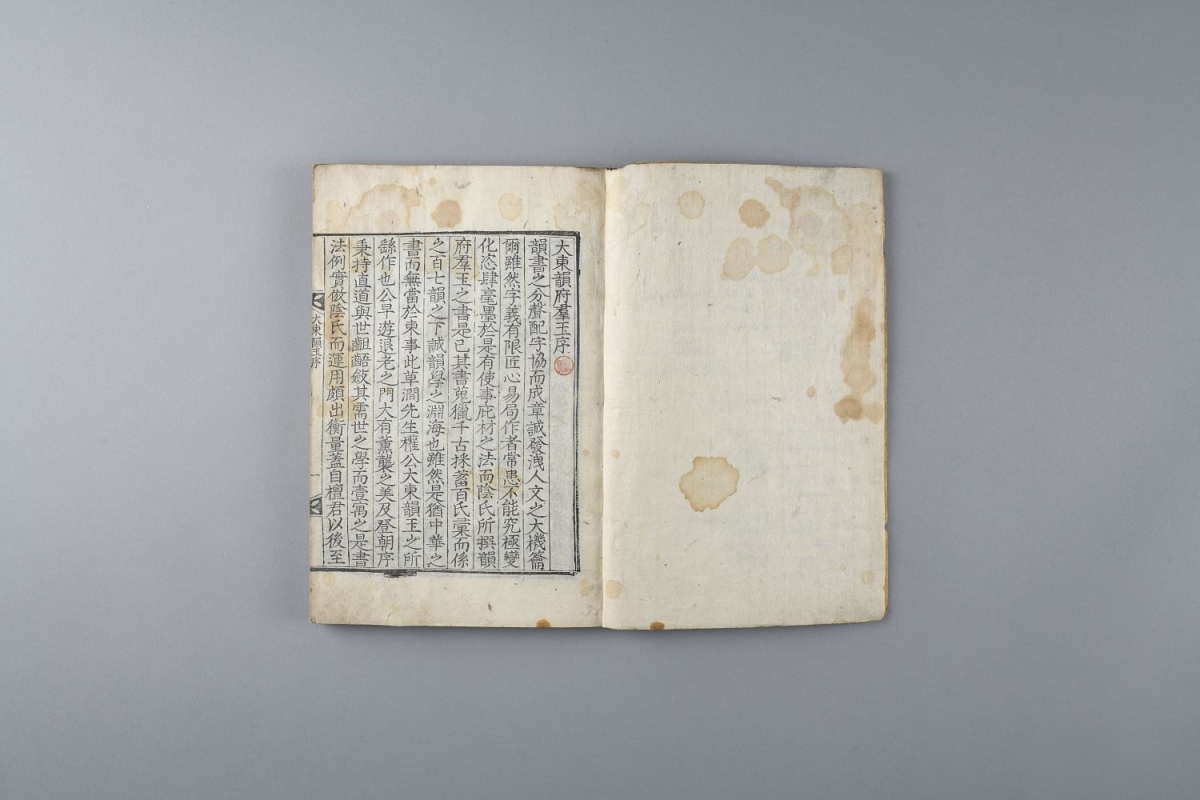 大東韻府羣玉序
韻書之分聲配字協而成章誠發洩人文之大機籥
爾雖然字義有限匠心易局作者常患不能究極變
化恣肆毫墨於是有使事庇材之法而陰氏所撰韻
府羣玉之書是已其書蒐獵千古採蓄百氏彙而係
之百七韻之下誠韻學之淵海也雖然是猶中華之
書而無當於東事此草澗先生權公大東韻玉之所
繇作也公早遊退老之門大有薰襲之美及登朝序
秉持直道與世齟齬斂其需世之學而壹寓之是書
法例實倣陰氏而運用頗出衡量蓋自檀君以後至
大東韻玉序
一